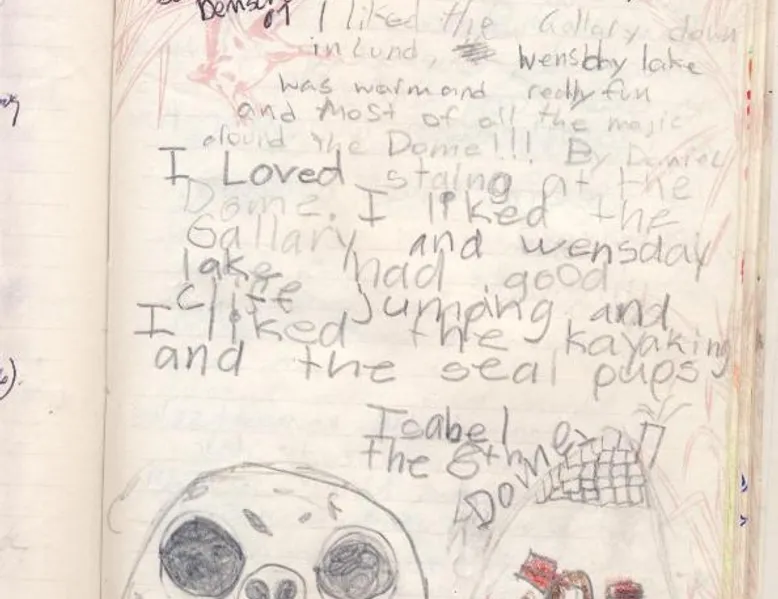 I liked the Gallary down
in Lund, Wensday lake
was warm and really fun
and Most of all the magic
around the Dome!!! By Daniel
I Loved staing at the
Dome. I liked the
Gallary and wensday
lake had good
cliff Jumping and
I liked the kayaking
and the seal pups
Isabel
the 8th
Dome